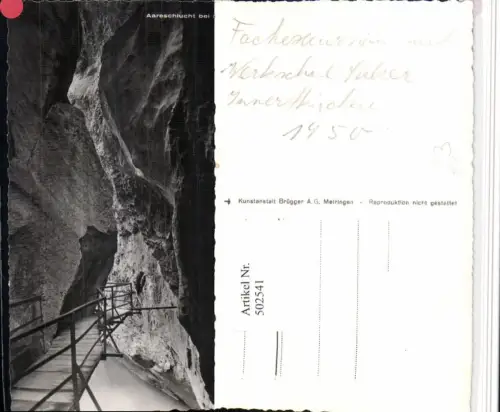 Aareschlucht bei
Werkschule
Innertkirchen
1950
Kunstanstalt Brügger A.G. Meiringen - Reproduktion nicht gestattet
Artikel Nr.
502541